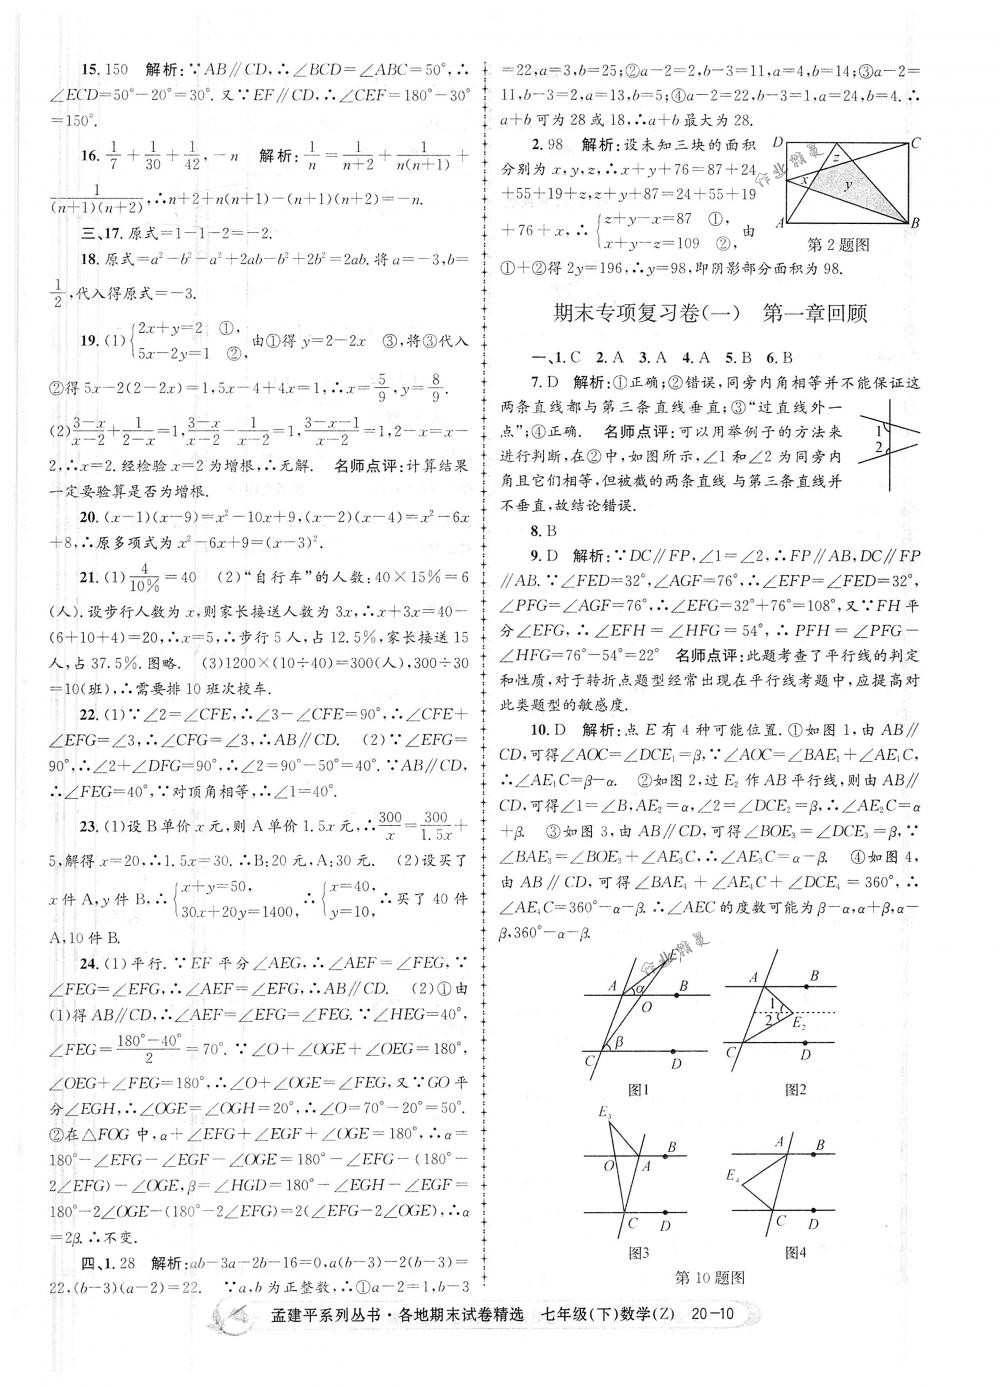 15. 150 解析:∵AB∥CD,∴∠BCD=∠ABC=50°,∴
∠ECD=50°-20°=30°. 又∵EF∥CD,∴∠CEF=180°-30°
=150°.
16. 1/7+1/30+1/42,-n 解析:1/n=1/(n+2)+1/(n(n+1))+
1/((n+1)(n+2)),∴n+2+n(n+1)-(n+1)(n+2)=-n.
三、17. 原式=1-1-2=-2.
18. 原式=a²-b²-a²+2ab-b²+2b²=2ab. 将a=-3,b=
1/2,代入得原式=-3.
19. (1){2x+y=2 ①, 5x-2y=1 ②, 由①得y=2-2x ③,将③代入
②得5x-2(2-2x)=1,5x-4+4x=1,∴x=5/9,y=8/9.
(2)(3-x)/(x-2)+1/(2-x)=1,(3-x)/(x-2)-1/(x-2)=1,(3-x-1)/(x-2)=1,2-x=x-
2,∴x=2. 经检验x=2为增根,∴无解. 名师点评:计算结果
一定要验算是否为增根.
20. (x-1)(x-9)=x²-10x+9,(x-2)(x-4)=x²-6x
+8,∴原多项式为x²-6x+9=(x-3)².
21. (1)4/10%=40 (2)“自行车”的人数:40×15%=6
(人). 设步行人数为x,则家长接送人数为3x,∴x+3x=40-
(6+10+4)=20,∴x=5,∴步行5人,占12.5%,家长接送15
人,占37.5%. 图略. (3)1200×(10÷40)=300(人),300÷30
=10(班),∴需要排10班次校车.
22. (1)∵∠2=∠CFE,∴∠3-∠CFE=90°,∴∠CFE+
∠EFG=∠3,∴∠CFG=∠3,∴AB∥CD. (2)∵∠EFG=
90°,∴∠2+∠DFG=90°,∴∠2=90°-50°=40°. ∵AB∥CD,
∴∠FEG=40°,∵对顶角相等,∴∠1=40°.
23. (1)设B单价x元,则A单价1.5x元,∴300/x=300/1.5x+
5,解得x=20,∴1.5x=30. ∴B:20元,A:30元. (2)设买了
x件A,y件B,∴{x+y=50, 30x+20y=1400, ∴{x=40, y=10, ∴买了40件
A,10件B.
24. (1)平行. ∵EF平分∠AEG,∴∠AEF=∠FEG,∵
∠FEG=∠EFG,∴∠AEF=∠EFG,∴AB∥CD. (2)①由
(1)得AB∥CD,∴∠AEF=∠EFG=∠FEG. ∵∠HEG=40°,
∠FEG=(180°-40°)/2=70°. ∵∠O+∠OGE+∠OEG=180°,
∠OEG+∠FEG=180°,∴∠O+∠OGE=∠FEG,又∵GO平
分∠EGH,∴∠OGE=∠OGH=20°,∴∠O=70°-20°=50°.
②在△FOG中,α+∠EFG+∠EGF+∠OGE=180°,∴α=
180°-∠EFG-∠EGF-∠OGE=180°-∠EFG-(180°-
2∠EFG)-∠OGE,β=∠HGD=180°-∠EGH-∠EGF=
180°-2∠OGE-(180°-2∠EFG)=2(∠EFG-2∠OGE),∴α
=2β. ∴不变.
四、1. 28 解析:ab-3a-2b-16=0,a(b-3)-2(b-3)=
22,(b-3)(a-2)=22. ∵a,b为正整数,∴①a-2=1,b-3
=22,a=3,b=25;②a-2=2,b-3=11,a=4,b=14;③a-2=
11,b-3=2,a=13,b=5;④a-2=22,b-3=1,a=24,b=4. ∴
a+b可为28或18,∴a+b最大为28.
2. 98 解析:设未知三块的面积
分别为x,y,z,∴x+y+76=87+24
+55+19+z,z+y+87=24+55+19
+76+x,∴{z+y-x=87 ①, x+y-z=109 ②, 由
①+②得2y=196,∴y=98,即阴影部分面积为98.
D C
z
x y
A B
第2题图
期末专项复习卷(一) 第一章回顾
一、1. C 2. A 3. A 4. A 5. B 6. B
7. D 解析:①正确;②错误,同旁内角相等并不能保证这
两条直线都与第三条直线垂直;③“过直线外一
点”;④正确. 名师点评:可以用举例子的方法来
进行判断,在②中,如图所示,∠1和∠2为同旁内
角且它们相等,但被截的两条直线与第三条直线并
不垂直,故结论错误.
1
2
8. B
9. D 解析:∵DC∥FP,∠1=∠2,∴FP∥AB,DC∥FP
∥AB. ∵∠FED=32°,∠AGF=76°,∴∠EFP=∠FED=32°,
∠PFG=∠AGF=76°,∴∠EFG=32°+76°=108°,又∵FH平
分∠EFG,∴∠EFH=∠HFG=54°,∴PFH=∠PFG-
∠HFG=76°-54°=22° 名师点评:此题考查了平行线的判定
和性质,对于转折点题型经常出现在平行线考题中,应提高对
此类题型的敏感度.
10. D 解析:点E有4种可能位置. ①如图1,由AB∥
CD,可得∠AOC=∠DCE₁=β,∵∠AOC=∠BAE₁+∠AE₁C,
∴∠AE₁C=β-α. ②如图2,过E₂作AB平行线,则由AB∥
CD,可得∠1=∠B,AE₂=α,∠2=∠DCE₂=β,∴∠AE₂C=α
+β. ③如图3,由AB∥CD,可得∠BOE₃=∠DCE₃=β,∵
∠BAE₃=∠BOE₃+∠AE₃C,∴∠AE₃C=α-β. ④如图4,
由AB∥CD,可得∠BAE₄+∠AE₄C+∠DCE₄=360°,∴
∠AE₄C=360°-α-β. ∴∠AEC的度数可能为β-α,α+β,α-
β,360°-α-β.
A α B
O
C β D
图1
A B
1
2 E₂
C D
图2
E₃
O A B
C D
图3
A B
E₄
C D
图4
第10题图
孟建平系列丛书·各地期末试卷精选 七年级(下)数学(Z) 20-10